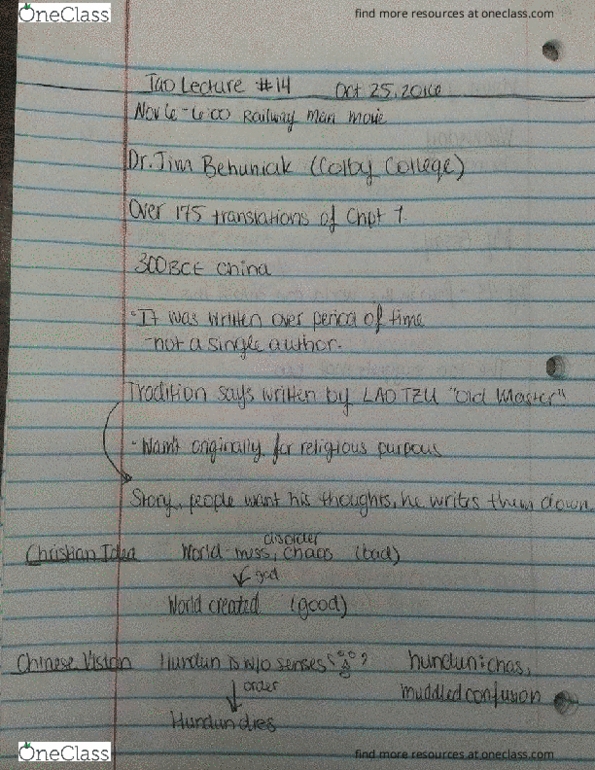 OneClass
find more resources at oneclass.com
Tao Lecture #14 Oct 25, 2016
Nov 6-6:00 Railway Man movie
Dr. Jim Behuniak (Colby College)
Over 175 translations of Chpt 1
300 BCE China
It was written over period of time
-not a single author.
Tradition says written by LAO TZU "Old Master"
- Wasn't originally for religious purpous
Story.. people want his thoughts, he writes them down
disorder
Christian Idea World- mess, chaos (bad)
god
World created (good)
Chinese Vision Hundun is w/o senses hundun: chaos,
order muddled confusion
Hundun dies
OneClass
find more resources at oneclass.com